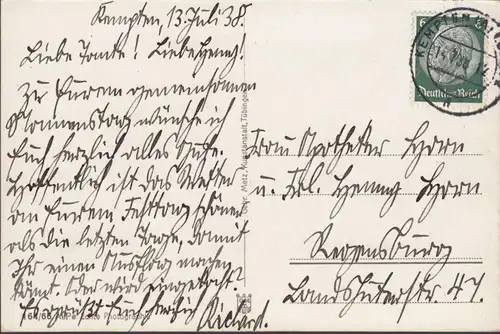 Kempten, 13. Juli 38.
Liebe Tante! Liebe Henny!
Zu Eurem gemeinsamen
Namenstag wünsche ich
Euch herzlich alles Gute.
Hoffentlich ist das Wetter
an Eurem Festtag schöner
als die letzten Tage, damit
Ihr einen Ausflug machen
könnt. Oder wird eingekocht?
Es grüßt Euch herzlich
Richard.
Gebr. Metz, Kunstanstalt, Tübingen
Echte Photographie
Deutsches Reich
KEMPTEN
Frau Apotheker Horn
u. Frl. Henny Horn
Regensburg
Landshuterstr. 47.